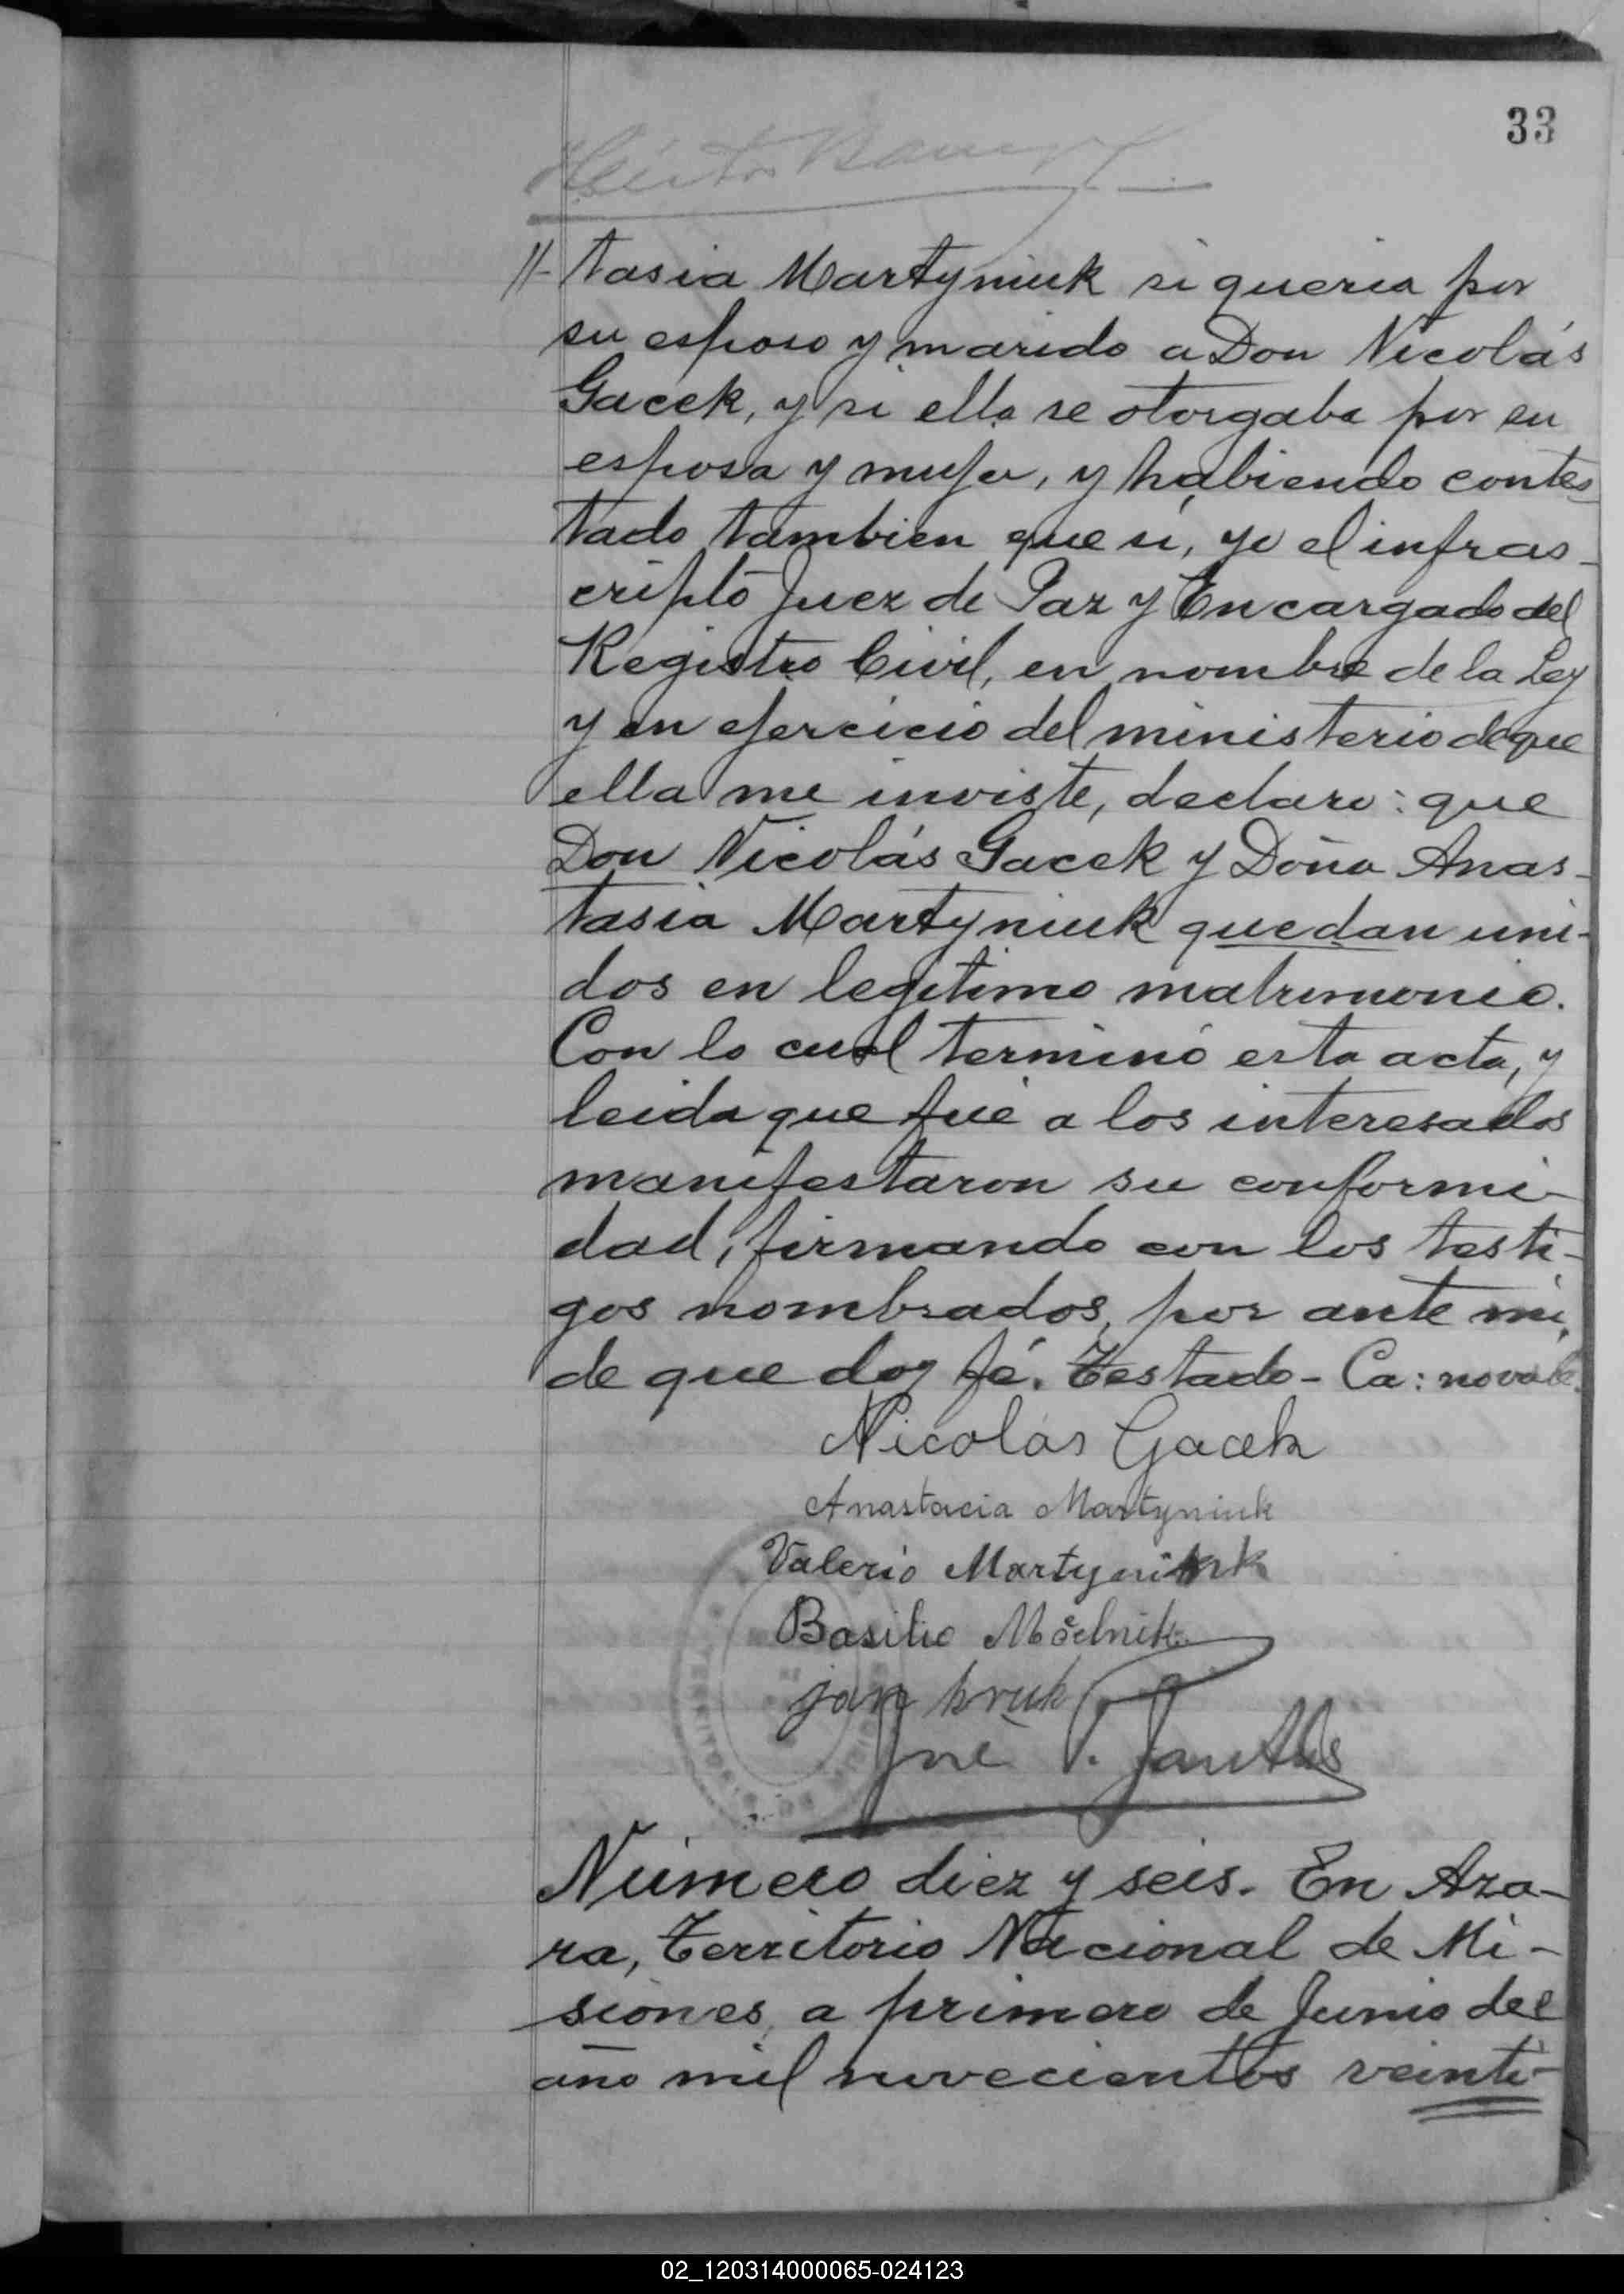 33
Héctor
//- tasia Martyniuk si queria por
su esposo y marido a Don Nicolás
Gacek, y si ella se otorgaba por su
esposa y mujer, y habiendo contes-
tado tambien que si, yo el infras-
cripto Juez de Paz y Encargado del
Registro Civil, en nombre de la Ley
y en ejercicio del ministerio de que
ella me inviste, declaro: que
Don Nicolás Gacek y Doña Anas-
tasia Martyniuk quedan uni-
dos en legitimo matrimonio.
Con lo cual terminó esta acta, y
leida que fué a los interesados
manifestaron su conformi-
dad, firmando con los testi-
gos nombrados, por ante mi,
de que doy fé. Testado - Ca: no vale.
Nicolás Gacek
Anastacia Martyniuk
Valerio Martyniuk
Basilio Mielnik
jan kruk
José P.
Número diez y seis. En Aza-
ra, Territorio Nacional de Mi-
siones, a primero de Junio del
año mil novecientos veinti-
02_120314000065-024123